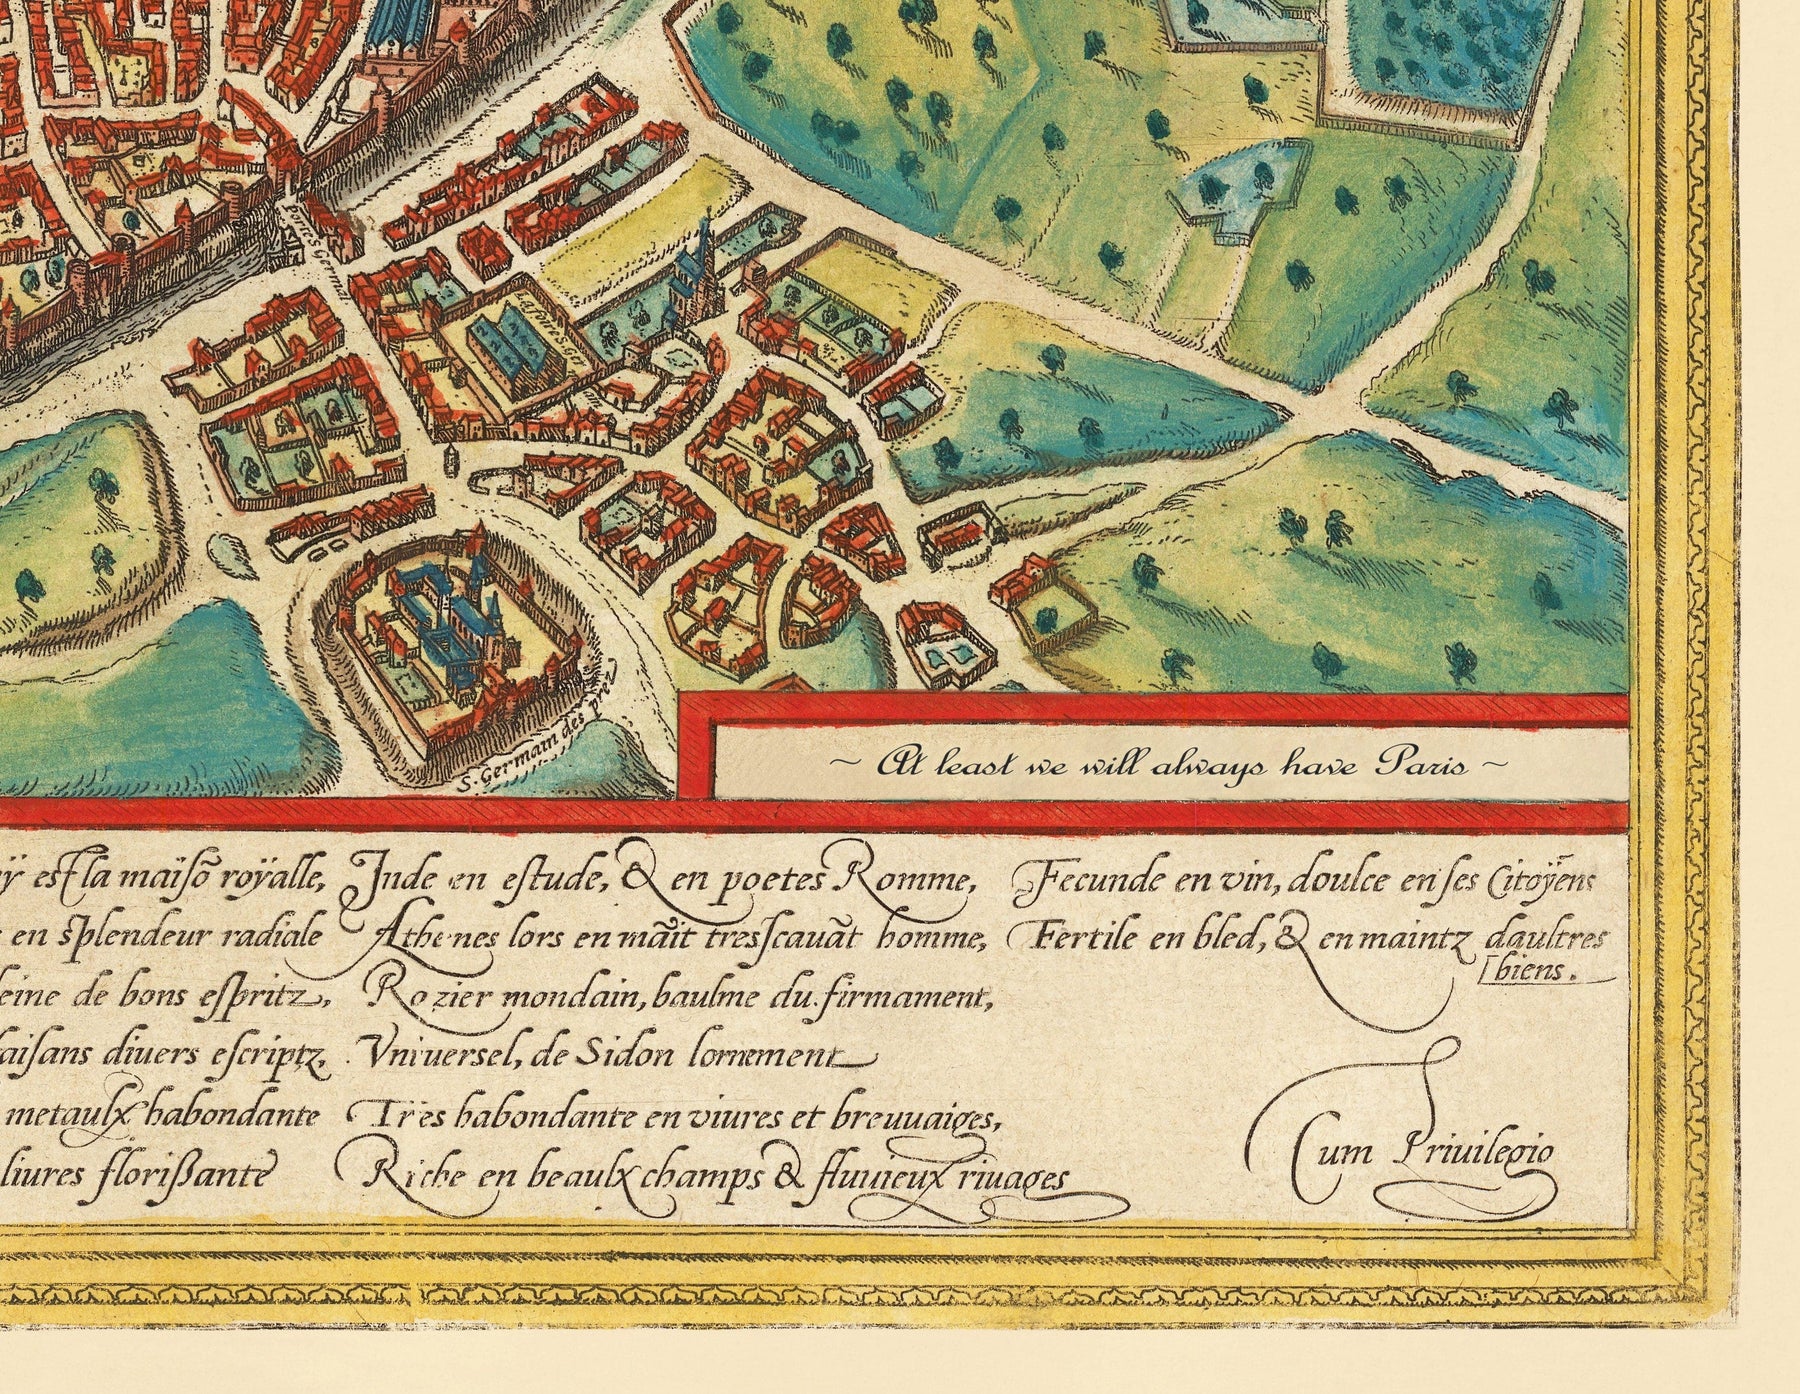 Porte S. Germai
La foire S. Ger
S. Germain des prez
~ At least we will always have Paris ~
ÿ est la maiſõ roÿalle,
en ſplendeur radiale
eine de bons eſpritz,
aiſans diuers eſcriptz,
metaulx habondante
liures florißante
Inde en eſtude, & en poetes Romme,
Athenes lors en mãit treſſcauãt homme,
Rozier mondain, baulme du firmament,
Vniuersel, de Sidon lornement
Tres habondante en viures et breuuaiges,
Riche en beaulx champs & fluuieux riuages
Fecunde en vin, doulce en ſes Citoÿens
Fertile en bled, & en maintz daultres
[biens.
Cum Priuilegio